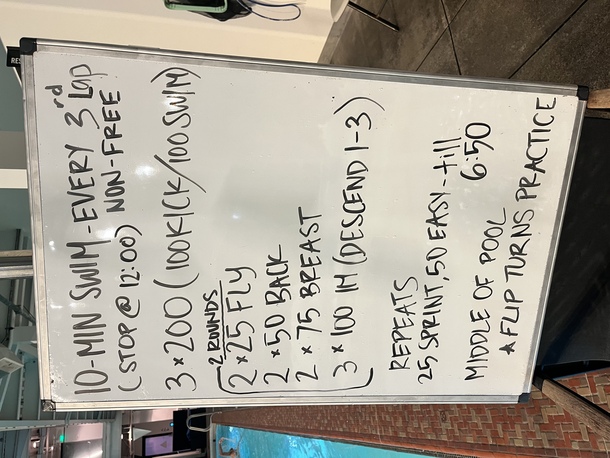 10-MIN SWIM - EVERY 3rd Lap
(STOP @ 12:00) NON-FREE
3 × 200 (100 KICK/100 SWIM)
2 ROUNDS
2 × 25 FLY
2 × 50 BACK
2 × 75 BREAST
3 × 100 IM (DESCEND 1-3)
REPEATS
25 SPRINT, 50 EASY - till
6:50
MIDDLE OF POOL
* FLIP TURNS PRACTICE